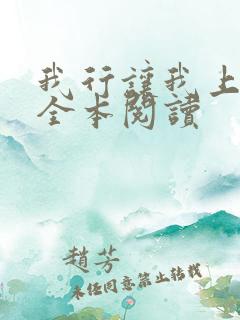 我行讓我上
全本閱讀
趙芳
未經同意禁止轉載